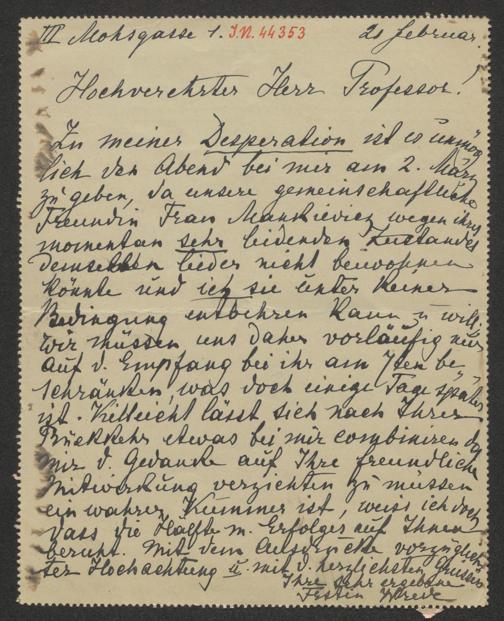 III Mohsgasse 1. I.N. 44353 21 februar.
Hochverehrter Herr Professor!
Zu meiner Desperation ist es unmög
lich den Abend bei mir am 2. März
zu geben, da unsere gemeinschaftliche
Freundin Frau Mankiewicz wegen ihres
momentan sehr leidenden Zustandes
demselben leider nicht beiwohnen
könnte und ich sie unter keiner
Bedingung entbehren kann u will,
wir müssen uns daher vorläufig nur
auf d. Empfang bei ihr am 7ten be-
schränken, was doch einige Tage später
ist. Vielleicht lässt sich nach Ihrer
Rückkehr etwas bei mir combiniren da
mir d. Gedanke auf Ihre freundliche
Mitwirkung verzichten zu müssen
ein wahrer Kummer ist, weiss ich doch
dass die Hälfte m. Erfolges auf Ihnen
beruht. Mit dem Ausdrucke vorzüglich-
ster Hochachtung u. mit d. herzlichsten Grüssen
Ihre sehr ergebene
Fürstin Wrede